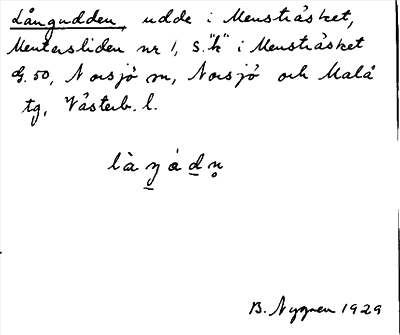 Långudden, udde i Mensträsket,
Mentersliden nr 1, S. "h" i Mensträsket
G. 50, Norsjö sn, Norsjö och Malå
tg, Västerb. l.
B. Nygren 1929